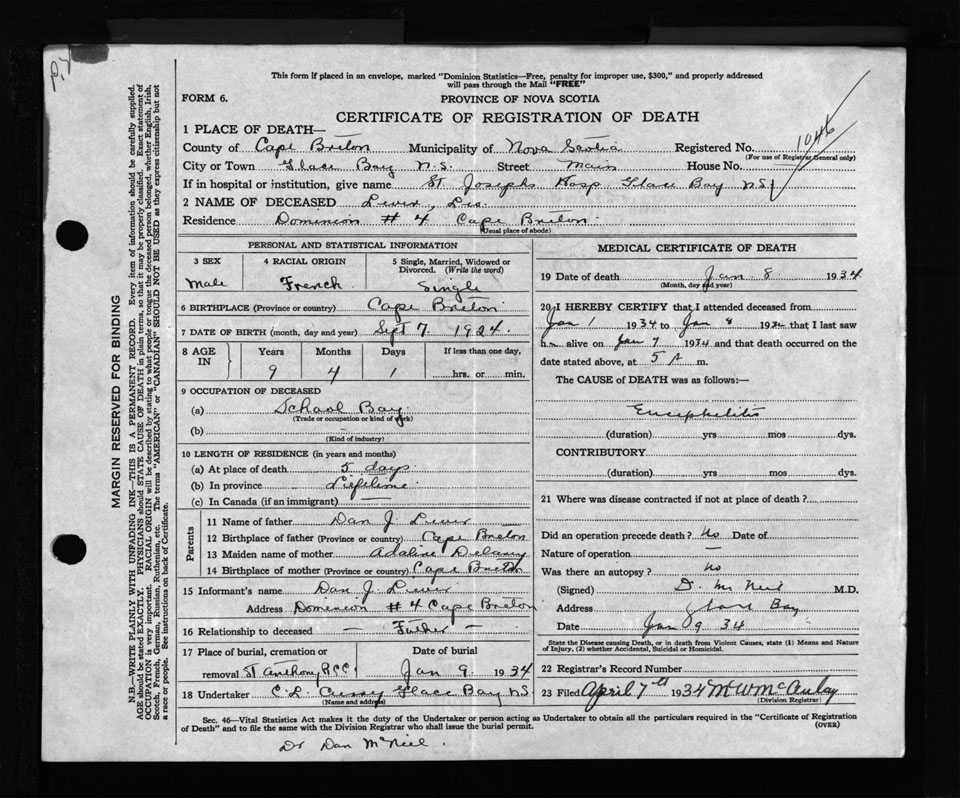 P.7
This form if placed in an envelope, marked "Dominion Statistics—Free, penalty for improper use, $300," and properly addressed
will pass through the Mail "FREE"
FORM 6.
PROVINCE OF NOVA SCOTIA
CERTIFICATE OF REGISTRATION OF DEATH
1 PLACE OF DEATH—
County of Cape Breton Municipality of Nova Scotia Registered No. 1046
(For use of Registrar General only)
City or Town Glace Bay N.S. Street Main House No.
If in hospital or institution, give name St Josephs Hosp Glace Bay N.S.
2 NAME OF DECEASED
Residence Dominion # 4 Cape Breton
(Usual place of abode)
PERSONAL AND STATISTICAL INFORMATION
3 SEX
Male
4 RACIAL ORIGIN
French
5 Single, Married, Widowed or
Divorced. (Write the word)
Single
6 BIRTHPLACE (Province or country) Cape Breton
7 DATE OF BIRTH (month, day and year) Sept 7. 1924.
8 AGE
IN
Years
9
Months
4
Days
1
If less than one day,
hrs. or min.
9 OCCUPATION OF DECEASED
(a) School Boy
(Trade or occupation or kind of work)
(b) —
(Kind of industry)
10 LENGTH OF RESIDENCE (in years and months)
(a) At place of death 5 days
(b) In province Lifetime
(c) In Canada (if an immigrant) —
Parents
11 Name of father Dan J.
12 Birthplace of father (Province or country) Cape Breton
13 Maiden name of mother Adaline Delaney
14 Birthplace of mother (Province or country) Cape Breton
15 Informant's name Dan J.
Address Dominion # 4 Cape Breton
16 Relationship to deceased — Father —
17 Place of burial, cremation or
removal St Anthony R.C.C.
Date of burial
Jan 9 1934
18 Undertaker C. L. Glace Bay N.S.
(Name and address)
MEDICAL CERTIFICATE OF DEATH
19 Date of death Jan 8 1934
(Month, day and year)
20 I HEREBY CERTIFY that I attended deceased from
Jan 1 1934 to Jan 8 193 that I last saw
h alive on Jan 7 1934 and that death occurred on the
date stated above, at 5 A m.
The CAUSE OF DEATH was as follows:—
Encephelitis
(duration) yrs mos dys.
CONTRIBUTORY
(duration) yrs mos dys.
21 Where was disease contracted if not at place of death?
Did an operation precede death? No Date of
Nature of operation —
Was there an autopsy? No
(Signed) D. Mc Neil M.D.
Address Glace Bay
Date Jan 9 34
State the Disease causing Death, or in death from Violent Causes, state (1) Means and Nature
of Injury, (2) whether Accidental, Suicidal or Homicidal.
22 Registrar's Record Number
23 Filed April 7th 1934 M W McAulay
(Division Registrar)
Sec. 46—Vital Statistics Act makes it the duty of the Undertaker or person acting as Undertaker to obtain all the particulars required in the "Certificate of Registration
of Death" and to file the same with the Division Registrar who shall issue the burial permit.
(OVER)
Dr Dan McNeil.
MARGIN RESERVED FOR BINDING
N.B.—WRITE PLAINLY WITH UNFADING INK—THIS IS A PERMANENT RECORD. Every item of information should be carefully supplied.
AGE should be stated EXACTLY. PHYSICIANS should STATE CAUSE OF DEATH in plain terms, so that it may be properly classified. Exact statement of
OCCUPATION is very important. RACIAL ORIGIN will be described by stating to what people or tongue the deceased person belonged, whether English, Irish,
Scotch, French, German, Russian, Ruthenian, etc. The terms "AMERICAN" or "CANADIAN" SHOULD NOT BE USED as they express citizenship but not
a race or people. See instructions on back of Certificate.